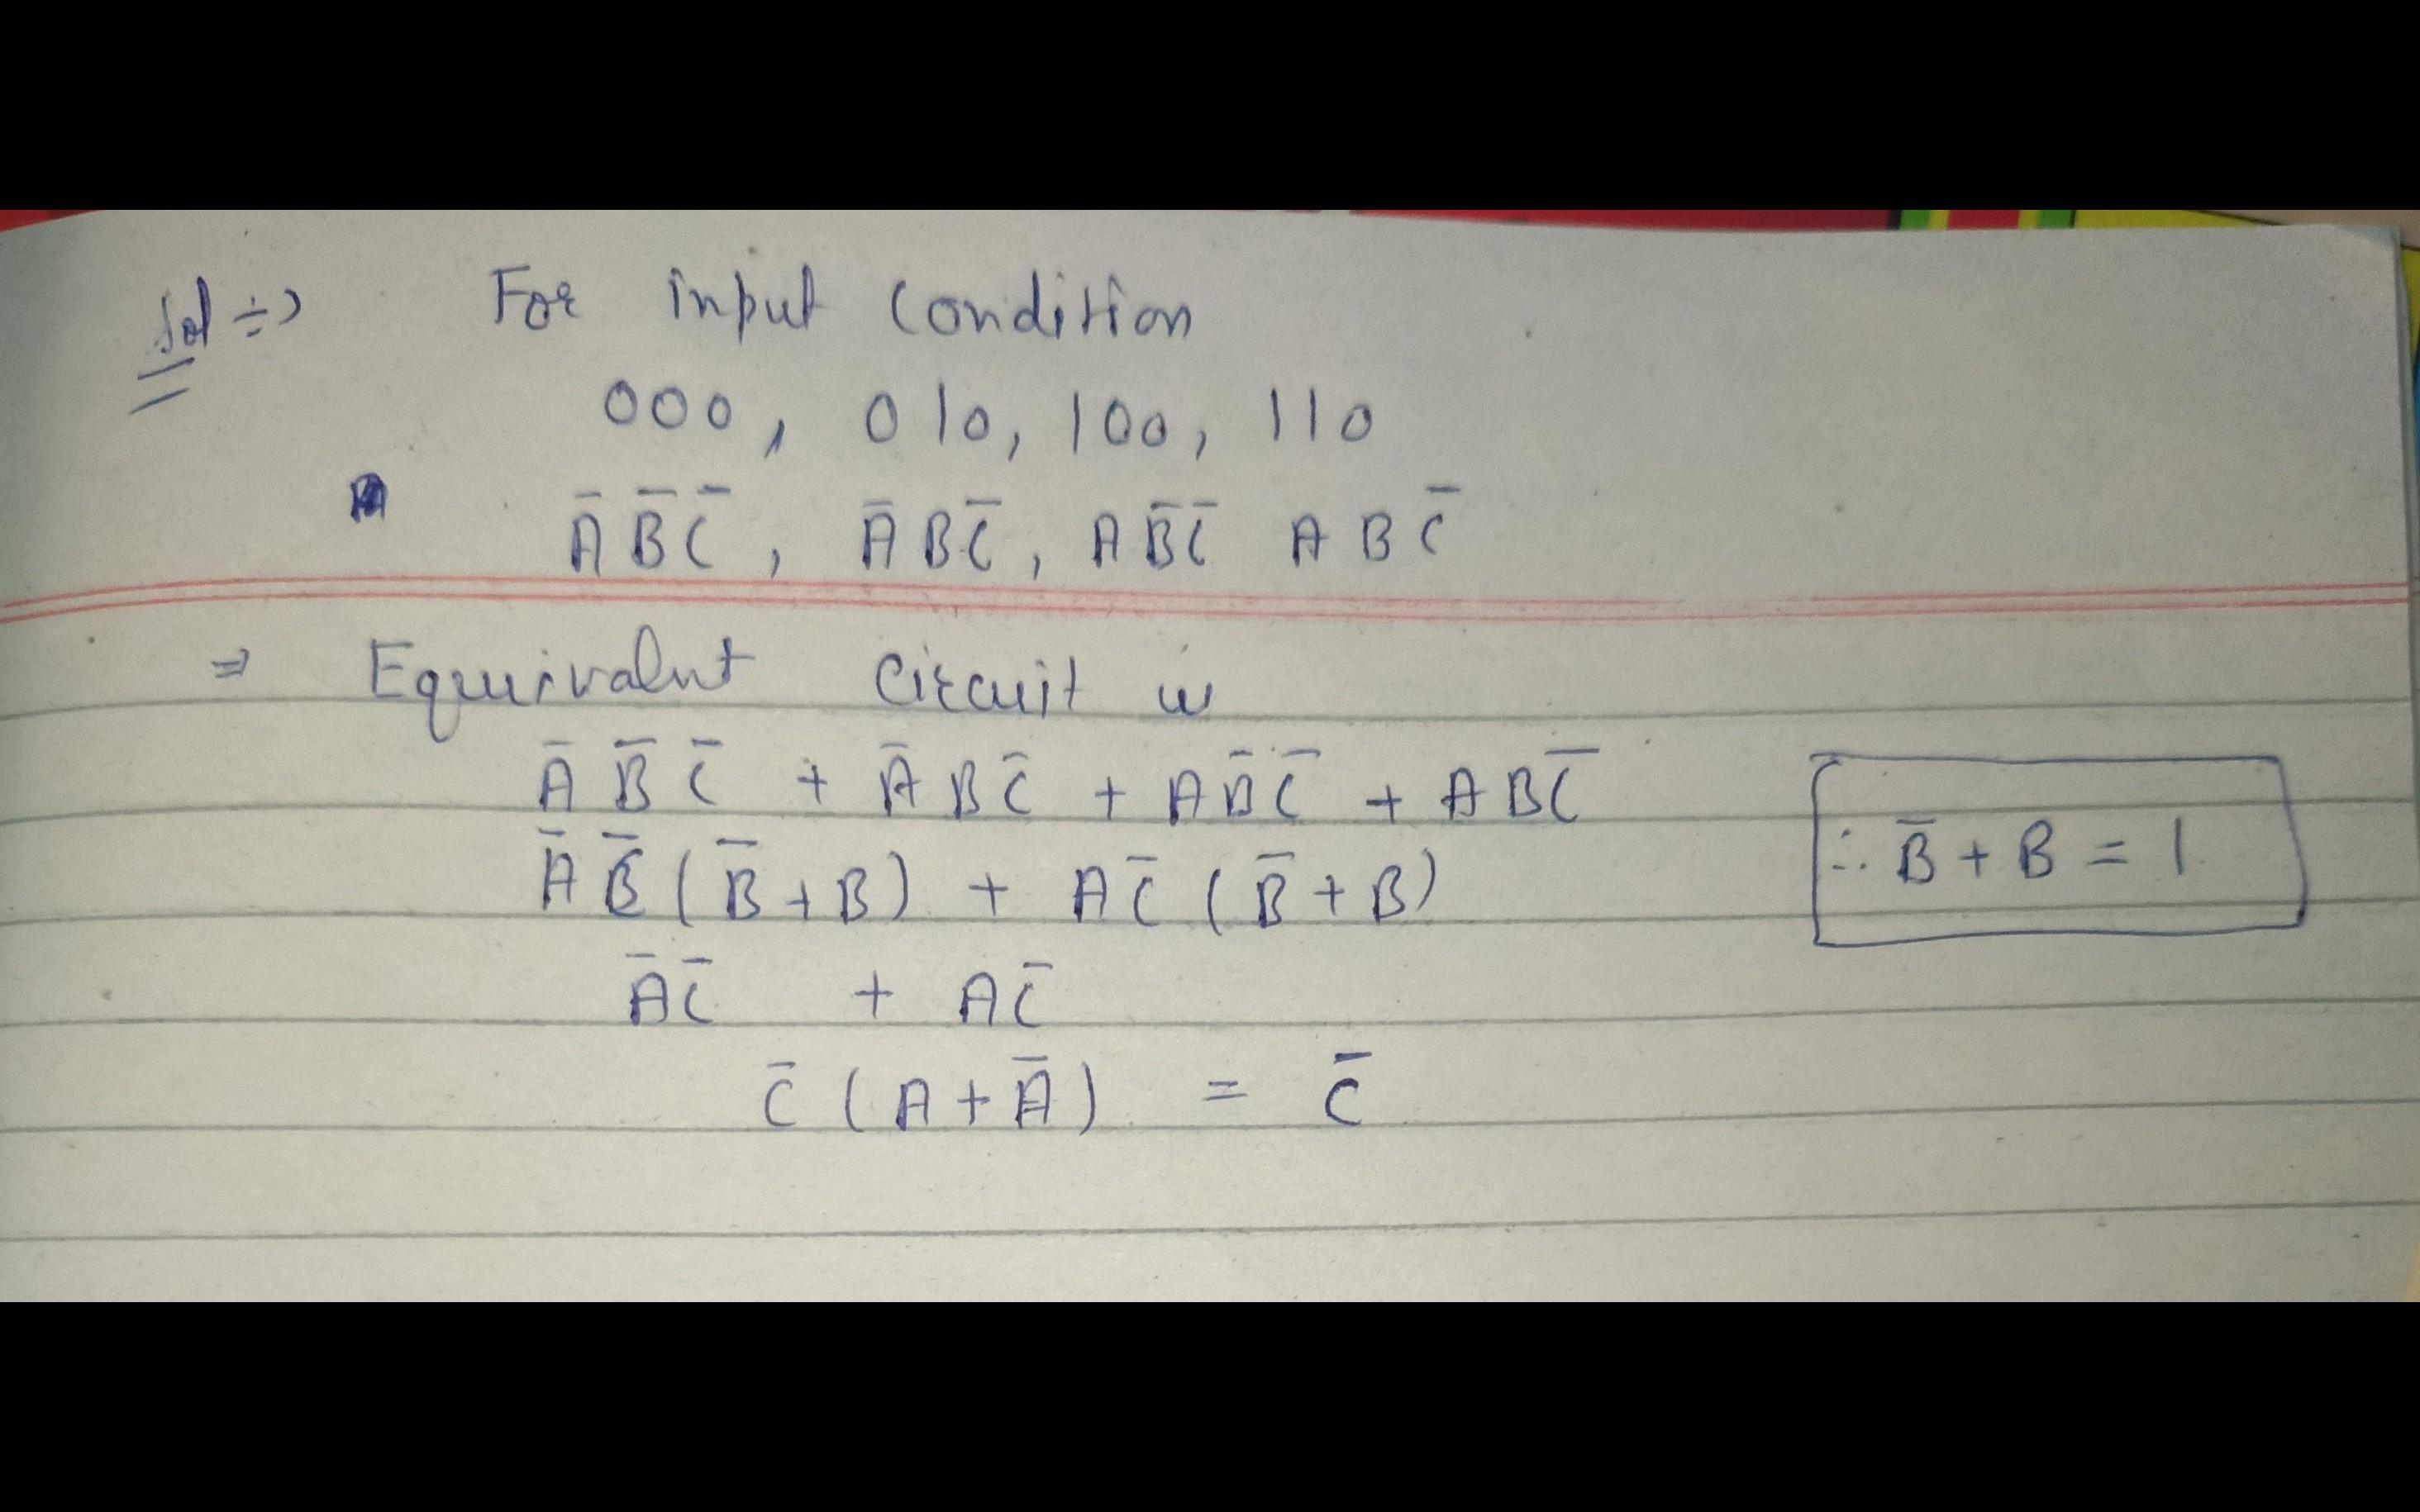 Sol ÷⇒ For input Condition
000, 010, 100, 110
A̅ B̅ C̅, A̅ B C̅, A B̅ C̅ A B C̅
⇒ Equivalent Circuit is
A̅ B̅ C̅ + A̅ B C̅ + A B̅ C̅ + A B C̅
A̅ C̅ (B̅ + B) + A C̅ (B̅ + B)
∴ B̅ + B = 1
A̅ C̅ + A C̅
C̅ (A + A̅) = C̅